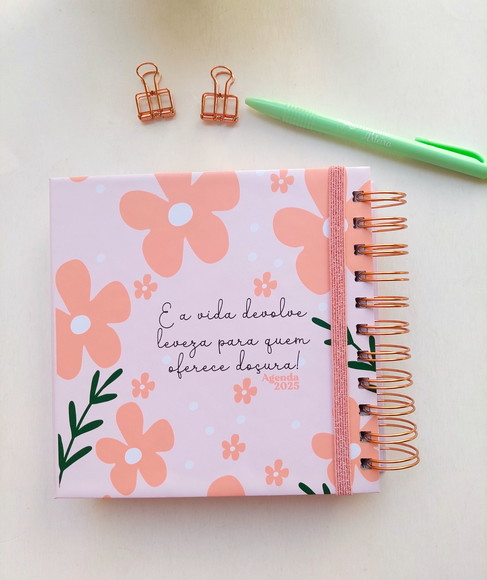 E a vida devolve
leveza para quem
oferece doçura!
Agenda
2025